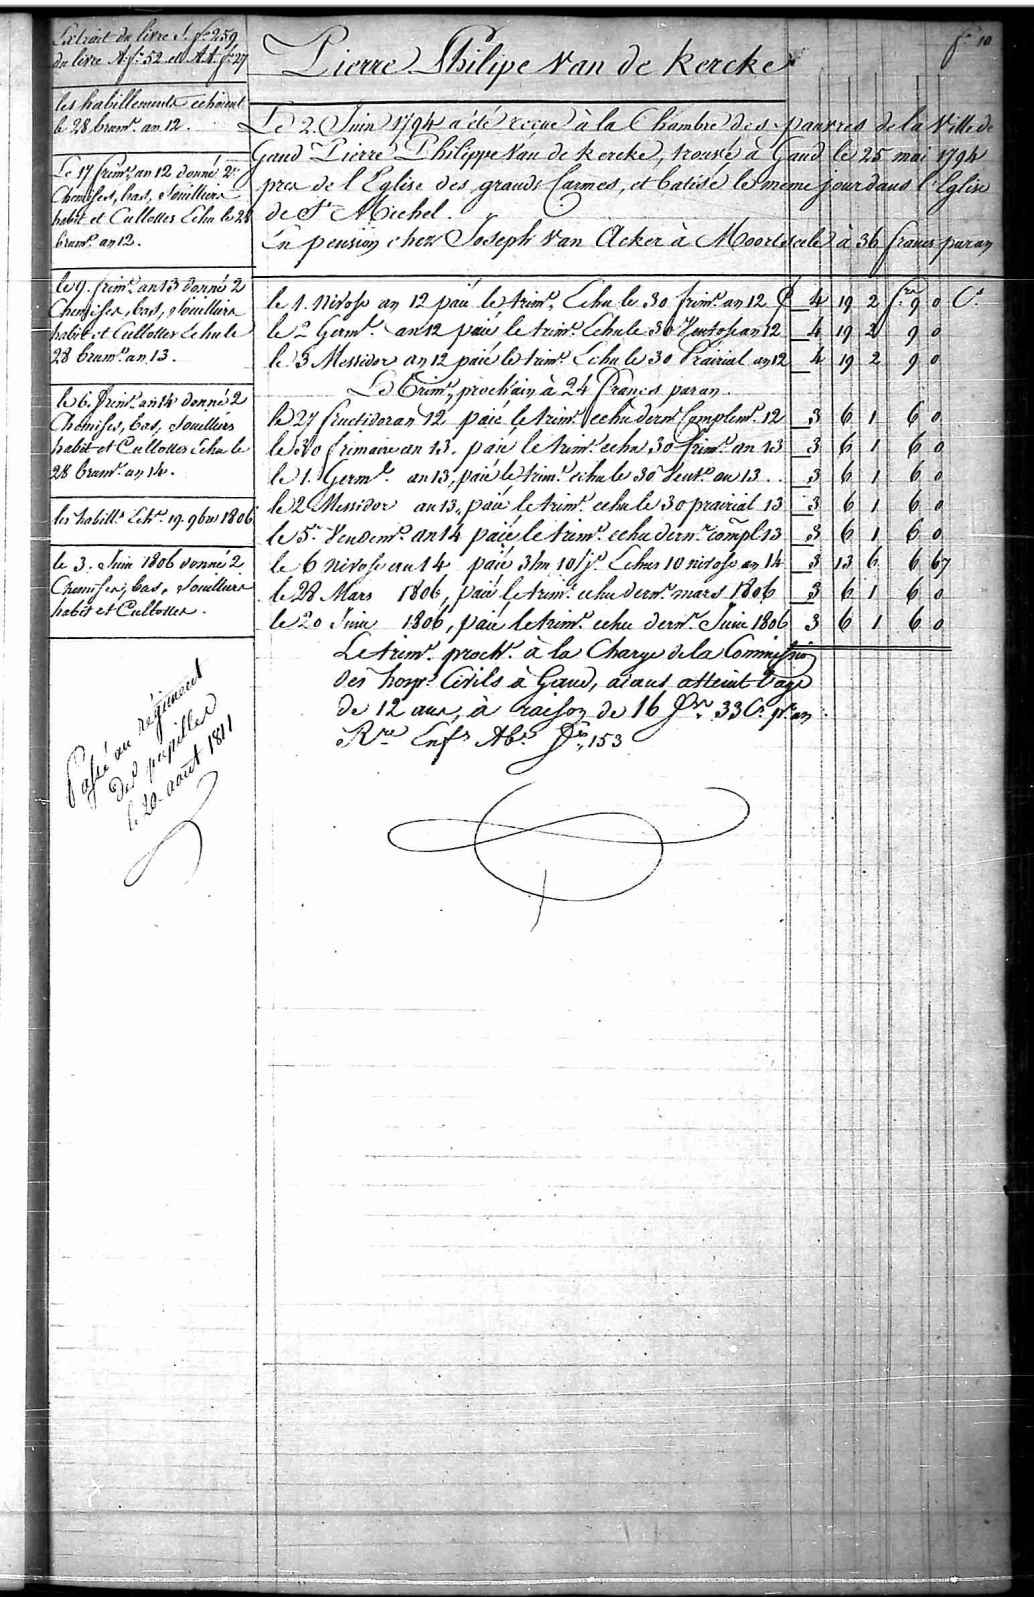 fo 10
Extrait du livre S. fo 259
du livre A fo 52 et AA fo 27
les habillements echoient
le 28 brumre an 12.
Le 17 frimre an 12 donné 2
Chemises, bas, Souilliers
habit et Cullottes Echu le 28
brumre an 12.
le 9. frimre an 13 donné 2
Chemises, bas, Souilliers
habit et Cullottes Echu le
28 brumre an 13.
le 6. frimre an 14 donné 2
Chemises, bas, Souilliers
habit et Cullottes Echu le
28 brumre an 14.
les habillts Echt 19. 9bre 1806
le 3. Juin 1806 donné 2
Chemises, bas, Souilliers
habit et Cullottes.
Passé au régiment
des pupilles
le 20 août 1811
Pierre Philipe Van de Kercke
Le 2. Juin 1794 a été reçue à la Chambre des pauvres de la Ville de
Gand Pierre Philippe Van de Kercke, trouvé à Gand le 25 mai 1794
pres de l'Eglise des grands Carmes, et batisé le meme jour dans l'Eglise
de St Michel.
En pension chez Joseph Van Acker à Moortseele à 36 francs par an
le 1. Nivose an 12 paié le trimre Echu le 30 frimre an 12 £ 4 19 2 frs 9 0 Cs
le 2 Germl an 12 paié le trimre Echu le 30 Ventose an 12 4 19 2 9 0
le 3 Messidor an 12 paié le trimre Echu le 30 Prairial an 12 4 19 2 9 0
Le Trimre prochain à 24 francs par an.
le 27 fructidor an 12 paié le trimre echu dernr Complemre 12 3 6 1 6 0
le 30 frimaire an 13. paié le trimre echu 30 frimre an 13 3 6 1 6 0
le 1. Germl an 13, paié le trimre echu le 30 Vente an 13 3 6 1 6 0
le 2 Messidor an 13, paié le trimre echu le 30 prairial 13 3 6 1 6 0
le 5. Vendemre an 14 paié le trimre echu dernr compl 13 3 6 1 6 0
le 6 nivose an 14 paié 3 m 10 js Echus 10 nivose an 14 3 13 6 6 67
le 28 Mars 1806, paié le trimre echu dernr mars 1806 3 6 1 6 0
le 20 Juin 1806, paié le trimre echu dernr Juin 1806 3 6 1 6 0
Le trimre procht à la Charge de la Commission
des hospes Civils à Gand, aiant atteint l'age
de 12 ans, à raison de 16 frs 33 Cs pr an
Rre Enfs Abs fo 153